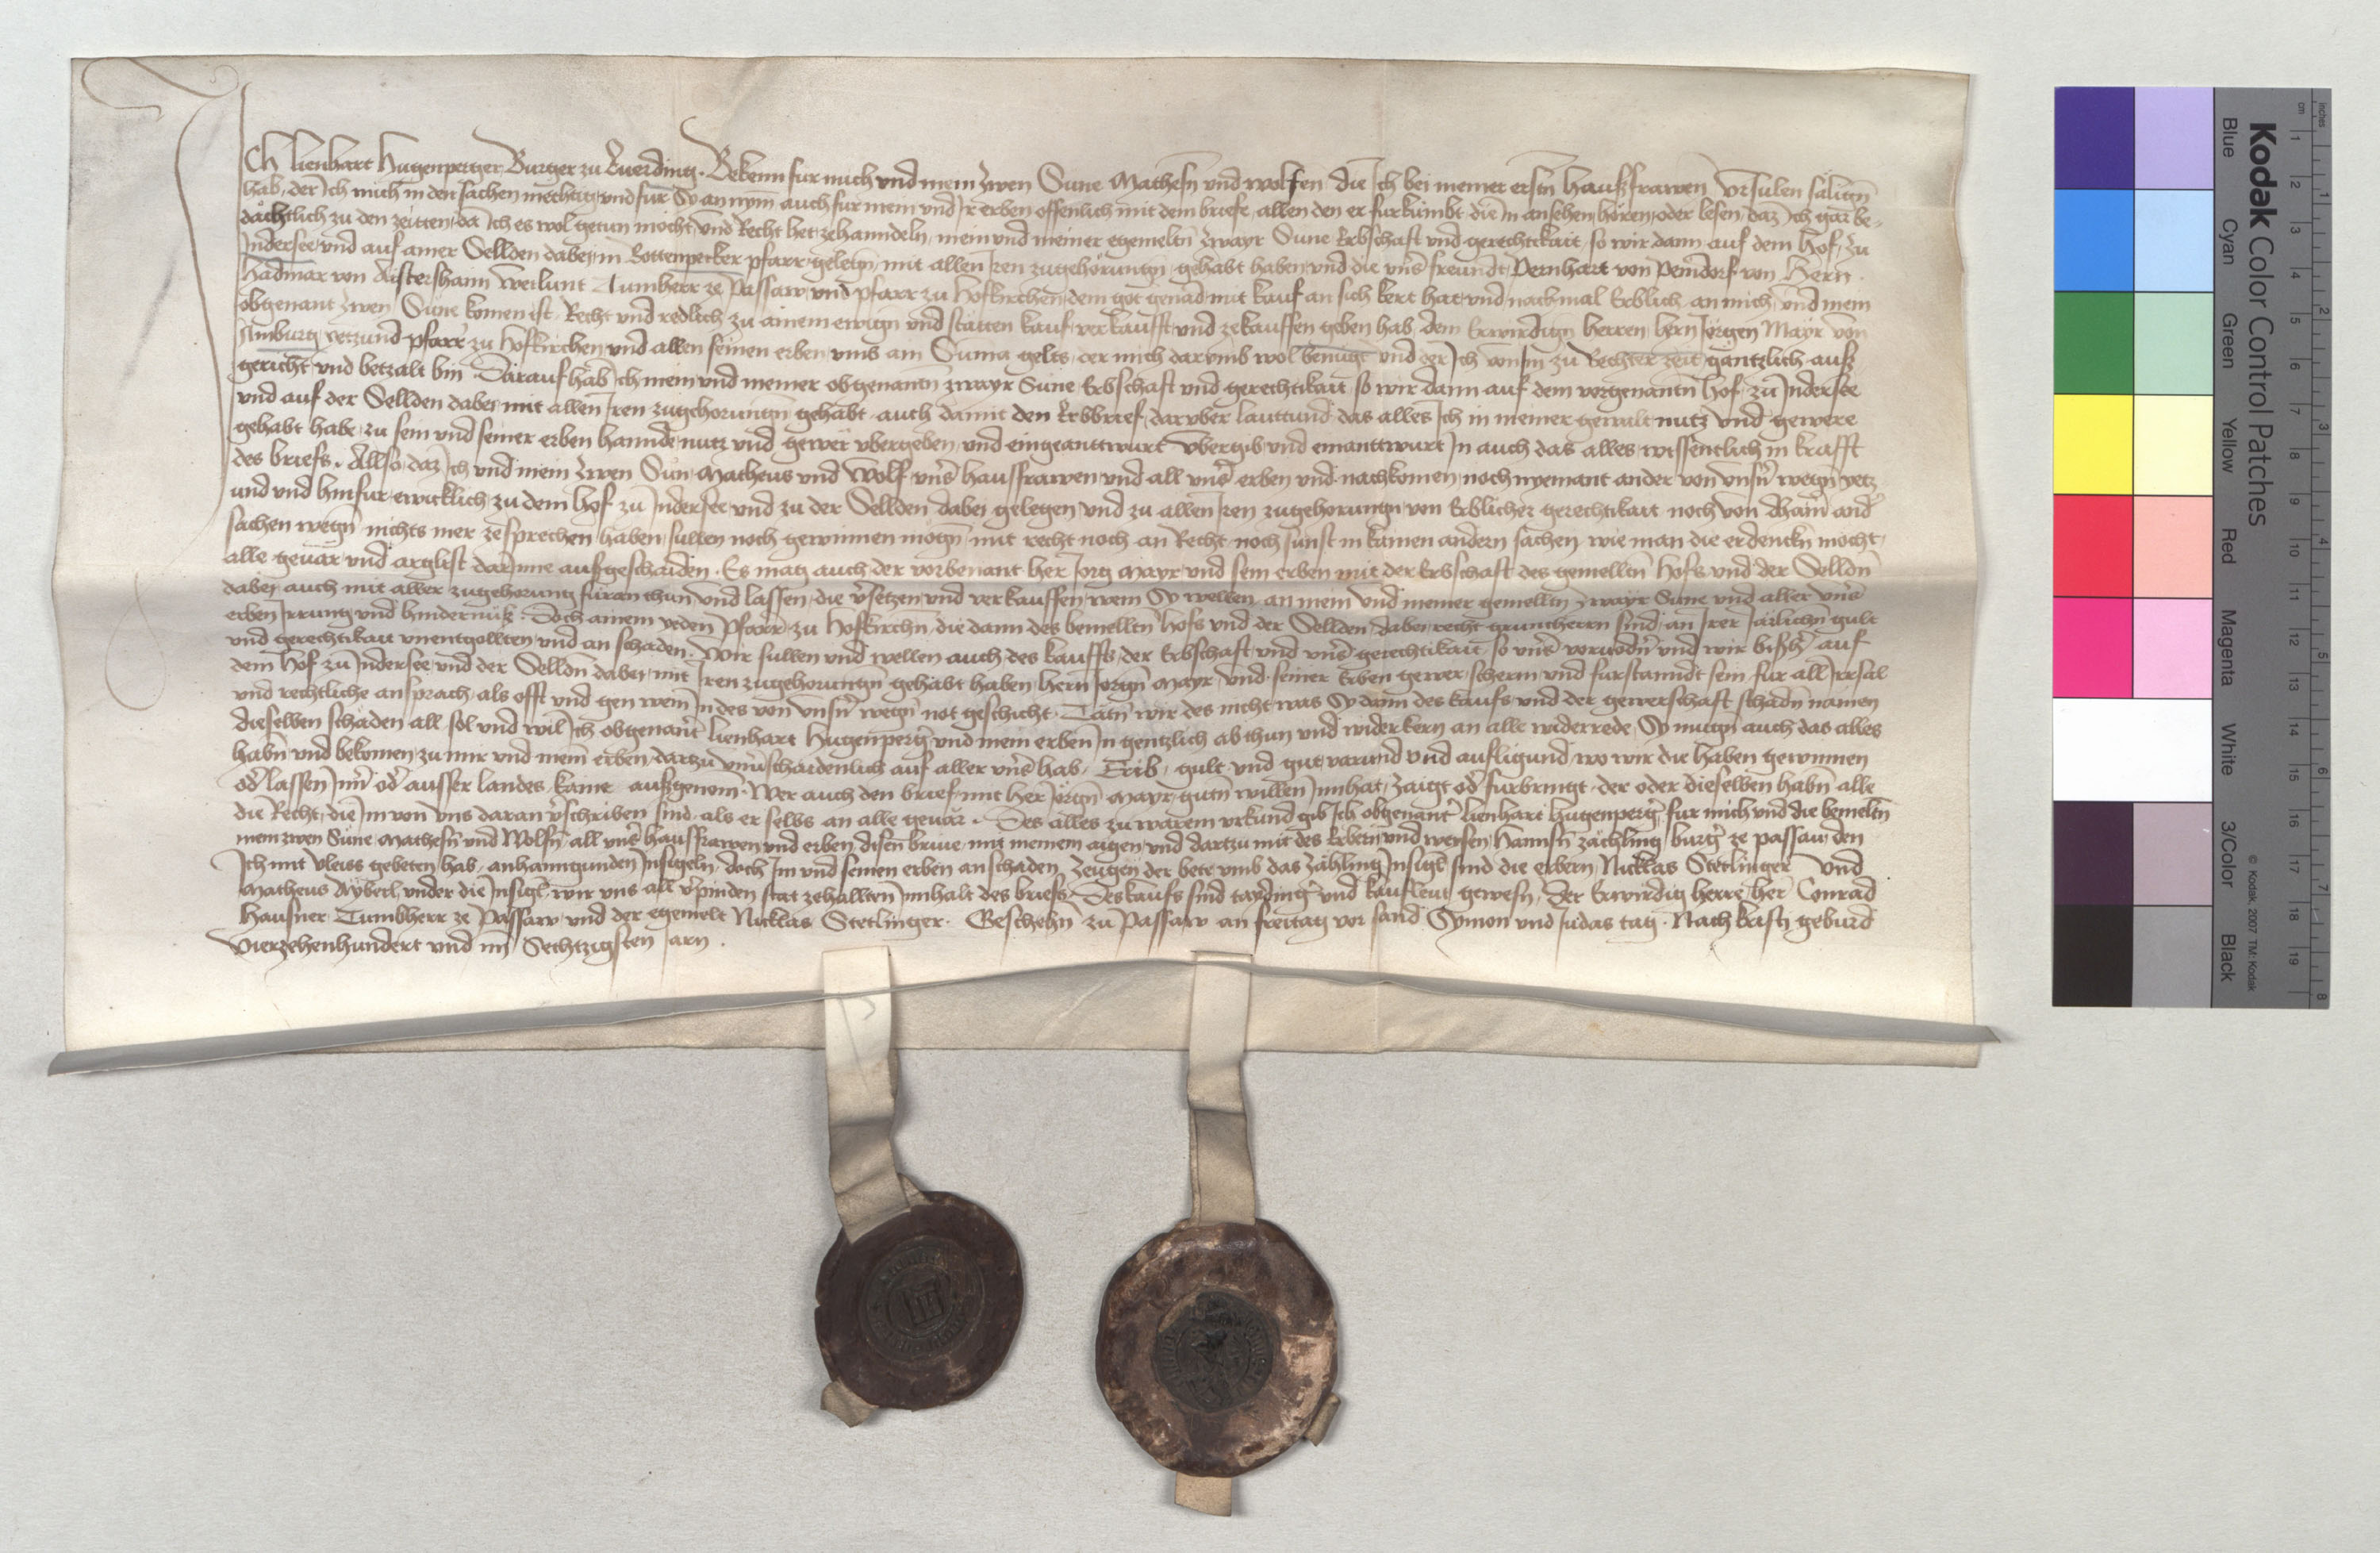 Ich Lienhart Hugenperger Burger zu Euerding. Bekenn fur mich und mein zwen Sune Mathesn und wolfen die Ich bei meiner erstn Haußfrawen Ursulen sälign
hab, der Ich mich in den sachen mechtig und fur Sy annym auch fur mein und Jr erben offenlich mit dem briefe allen den er furkumbt die in ansehen hören oder lesen daz Ich gar be-
dächtlich zu den zeitten da Ich es wol getun mocht und Recht het zehanndeln mein und meiner egemeltn zwayr Sune Erbschaft und gerechtikait so wir dann auf dem Hof zu
Jndersee und auf ainer Sellden dabei in Rottenpecker pfarr gelegn mit allen Iren zugehörungn gehabt haben und die uns freundt Pernhart von Perndorf von Hern
Hadmar von Aistershaim weilunt Tumbherr ze Passaw und pfarr zu Hofkirchen dem got genad mit kauf an sich kert hat und nachmal Erblich an mich und mein
obgenant zwen Süne komen ist Recht und redlich zu ainem ewign und stätten kauf verkaufft und zekauffen geben hab dem Erwirdign herren hern Jörgen Mayr von
Amburg yetzund pfarrer zu Hofkirchen und allen seinen erben umb ain Suma gelts der mich darumb wol benügt und der Ich von im zu Rechter zeit gäntzlich auß
gericht und betzalt bin Darauf hab Ich mein und meiner obgenantn zwayr Süne Erbschaft und gerechtikait so wir dann auf dem vorgenantn Hof zu Jndersee
und auf der Sellden dabei mit allen Iren zugehorungn gehabt auch damit den Erbbrief darüber lauttund das alles Ich in meiner gewalt nutz und gewere
gehabt habe zu sein und seiner erben hannde nutz und gewer ubergeben und eingeanttwurt Ubergib und einanttwurt In auch das alles wissentlich in krafft
des briefs. Allso daz Ich und mein zwen Sün Matheus und Wolf uns haussfrawen und all uns erben und nachkomen noch nyemant ander von unsn wegn yetz
und und hinfur ewicklich zu dem Hof zu Jndersee und zu der Sellden dabei gelegen und zu allen Iren zugehorungn von Erblicher gerechtikait noch von dhain and
sachen wegn nichts mer ze sprechen haben sullen noch gewinnen mögn mit recht noch an Recht noch sunst in kainen andern sachen wie man die erdenckn mocht
alle gevär und arglist darinne außgeschaiden. Es mag auch der vorbenant her Jorg Mayr und sein erben mit der Erbschaft des gemelltn Hofs und der Selldn
dabei auch mit aller zugehorung furan thun und lassen die vsetzen und verkauffen wem Sy wellen an mein und meiner gemelltn zwayr Sune und aller uns
erben Irrung und hindernüß. Doch ainem yeden Pfarrer zu Hofkirchn die dann des bemelltn Hofs und der Sellden dabei recht gruntherrn sind an Irer Järlichn gult
und gerechtikait unentgollten und an schaden. Wir sullen und wellen auch des kauffs der Erbschaft und uns gerechtikait so uns vorvodn und wir bisher auf
dem Hof zu Jndersee und der Selldn dabei mit Iren zugehorungn gehabt haben hern Jorgn Mayr und seiner Erben gewer scherm und furstanndt sein fur all Irrsal
und rechtliche ansprach als offt und gen wem In des von unsn wegn not geschicht. Tätn wir des nicht was Sy dann des kaufs und der gewerschaft schadn nämen
dieselben schäden all sol und wil Ich obgenanter Lienhart Hugenperger und mein erben In gentzlich ab thun und widerkern an alle widerrede Sy mugn auch das alles
habn und bekomen zu mir und mein erben dartzu unverschaidenlich auf aller uns hab, Erib, gult und gut varund und aufligund wo wir die haben gewinnen
od lassen Inn od ausser landes kaine außgenom. Wer auch den brief mit her Jorgn Mayr gutn willen Innhat zaigt od furbringt der oder dieselben habn alle
die Recht die im von uns daran vschriben sind als er selbs an alle gevär. Des alles zu warem urkund gib Ich obgenanter Lienhart Hugenperger fur mich und die bemeltn
mein zwen Süne Mathesn und Wolfn all uns haussfrawen und erben disen brieve mit meinem aigen und dartzu mit des Erbern und weisen Hannsn zächling burger ze passaw den
Ich mit vleiss gebeten hab anhanngunden Insigeln doch Im und seinen erben an schaden Zeugen der bete umb das Zächling Insigl sind die erbern Nicklas Stetlinger und
Matheus Aybeck under die Insigl wir uns all vpinden stat zehallten Innhalt des briefs Des kaufs sind tayding und kaufleut gewesn Der Erwirdig herre her Conrad
Hausner Tumbherr ze Passaw und der egemelt Nicklas Stetlinger. Geschehn zu Passaw an freitag vor sand Symon und Judas tag. Nach Kristi geburd
Vierzehenhundert und im Sechtzigsten Jarn.
Kodak Color Control Patches
© Kodak, 2007 TM: Kodak
Blue Cyan Green Yellow Red Magenta White 3/Color Black
inches 1 2 3 4 5 6 7 8
cm 1 2 3 4 5 6 7 8 9 10 11 12 13 14 15 16 17 18 19